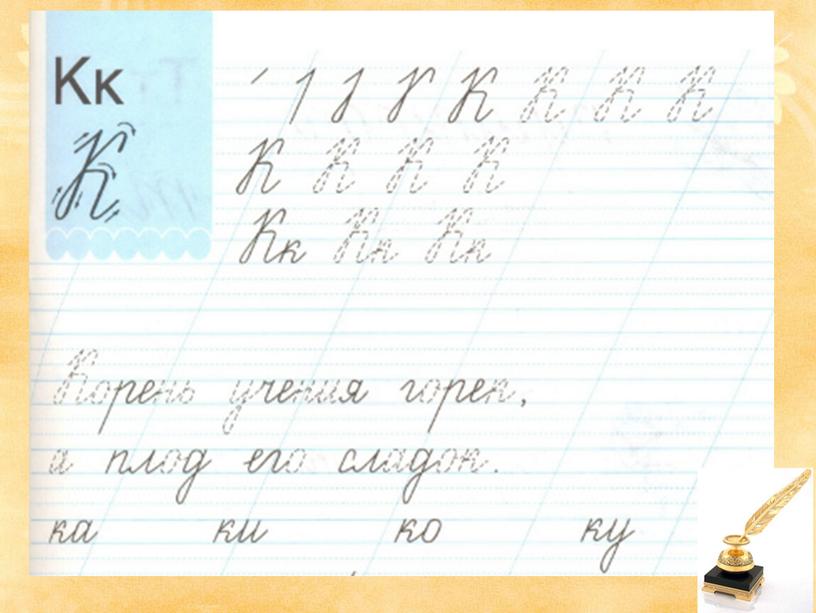 Кк
К
К К К К
К К К К
Кк Кк Кк
Корень учения горек,
а плод его сладок.
ка ки ко ку